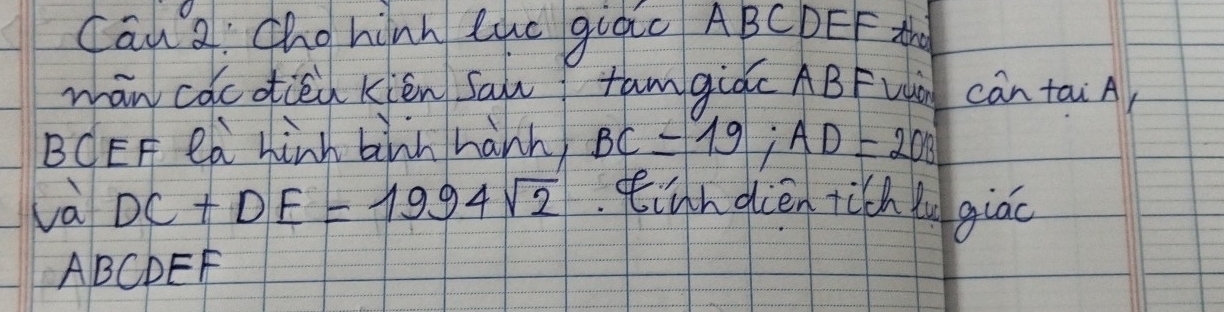 Câu 2: Cho hình lục giác ABCDEF thỏa
mãn các điều kiện sau: tam giác ABF vuông cân tại A,
BCEF là hình bình hành, BC = 19; AD = 2013
và DC + DE = 1994√2. tính diện tích lục giác
ABCDEF